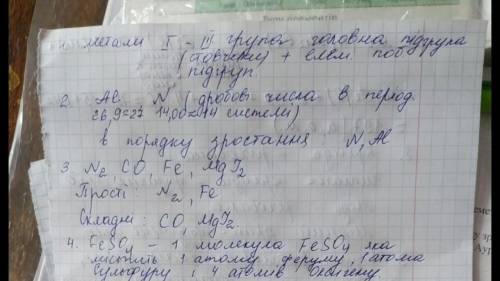 1. метали I - III група головна підгрупа
(                ) + елем. поб.
підгруп
2. Al N (дробові числа в період.
26,9≈27 14,00≈14 системі)
в порядку зростання N, Al
3 N2, CO, Fe, MgI2
Прості N2, Fe
Складні: CO, MgI2
4. FeSO4 - 1 молекула FeSO4 яка
містить 1 атом феруму, 1 атома
Сульфуру і 4 атомів Оксигену.